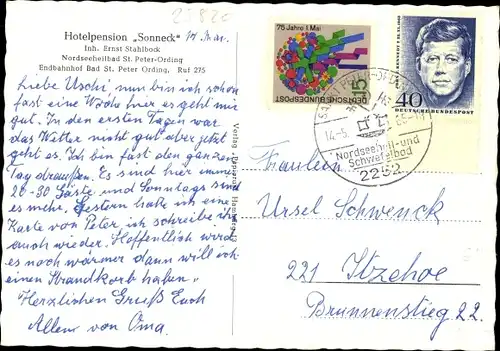 2252c
Hotelpension „Sonneck"
Inh. Ernst Stahlbock
Nordseeheilbad St. Peter-Ording
Endbahnhof Bad St. Peter Ording, Ruf 275
14. Mai.
Liebe Uschi, nun bin ich schon
fast eine Woche hier es geht mir
gut. In den ersten Tagen war
das Wetter nicht gut aber jetzt
geht es. Ich bin fast den ganzen
Tag draußen. Es sind hier immer
20-30 Gäste und Sonntags sind
es mehr. Gestern habe ich eine
Karte von Peter, ich schreibe ihm
auch wieder. Hoffentlich wird
es noch wärmer dann will ich
einen Strandkorb haben.
Herzlichen Gruß Euch
Allen von Oma.
Verlag
Hamburg
75 Jahre 1. Mai
15
DEUTSCHE BUNDESPOST
KENNEDY
40
DEUTSCHE BUNDESPOST
14.-5.
65
Nordseeheil- und
Schwefelbad
2252
Fräulein
Ursel Schwenck
221 Itzehoe
Brunnenstieg 22.